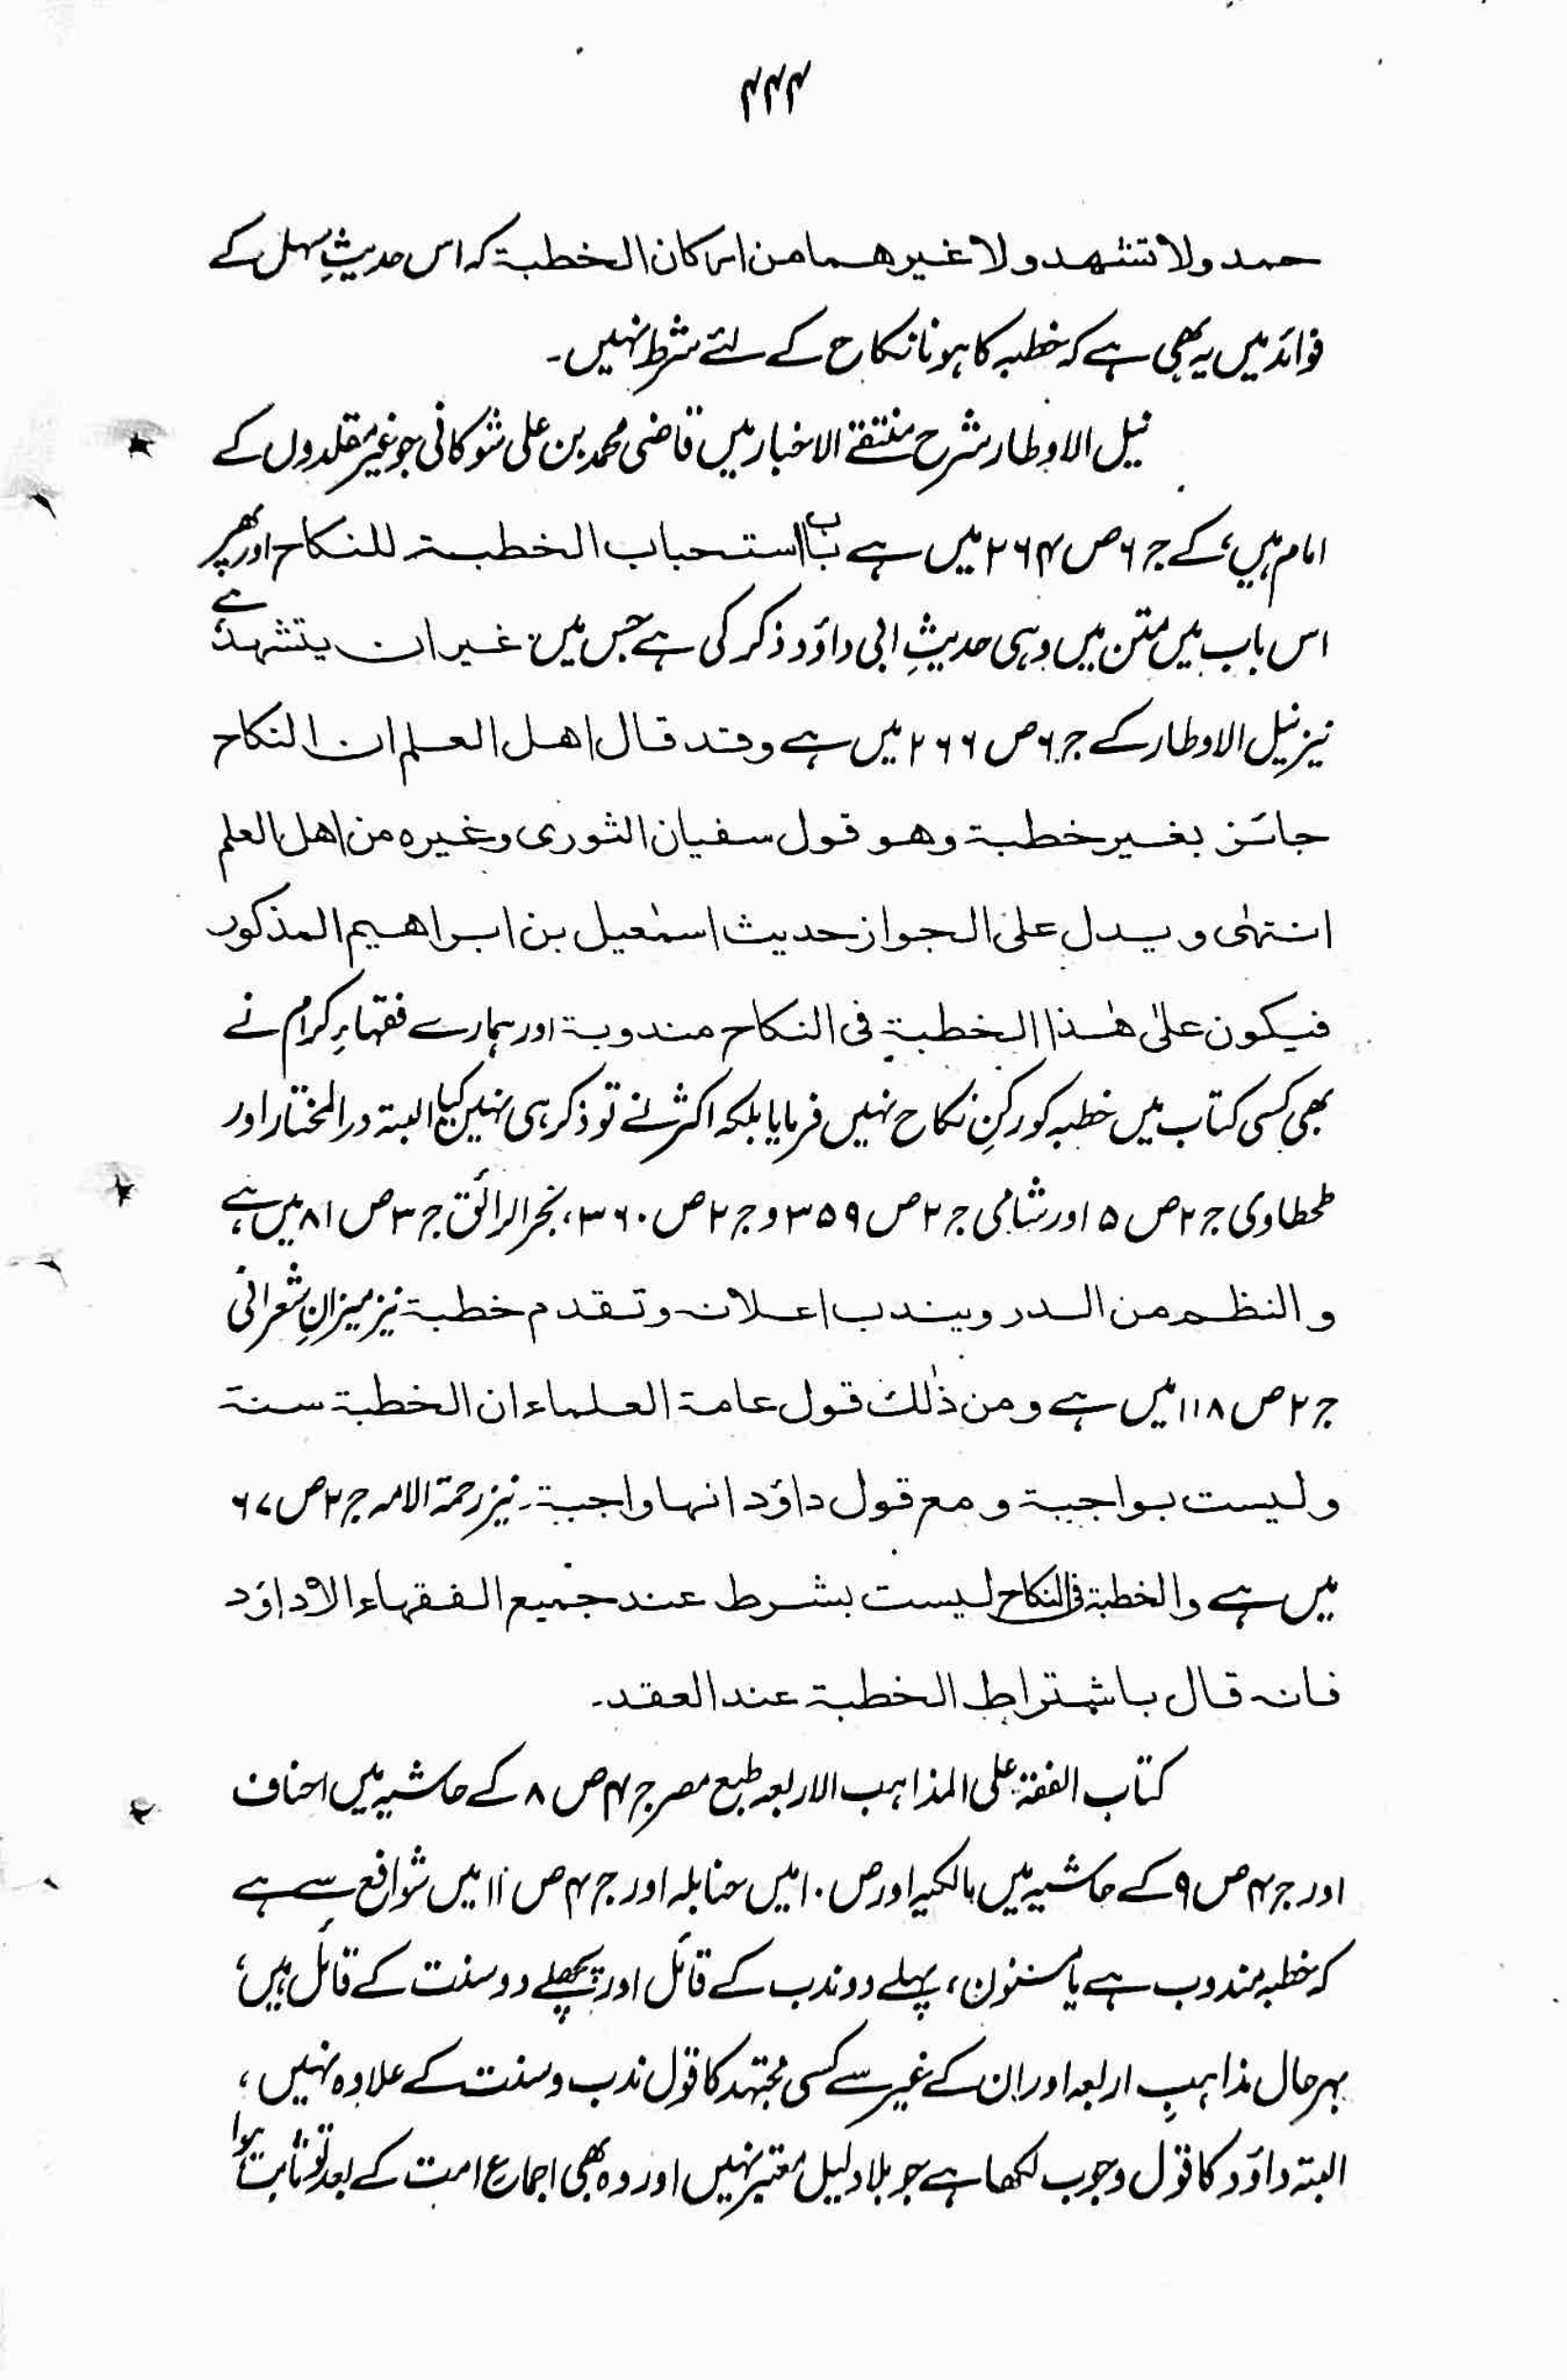 ۴۴۴
حمد ولا تشھد ولا غیرھما من ارکان الخطبۃ کہ اس حدیثِ سہل کے
فوائد میں یہ بھی ہے کہ خطبہ کا ہونا نکاح کے لئے شرط نہیں۔
نیل الاوطار شرح منتقے الاخبار میں قاضی محمد بن علی شوکانی جو غیر مقلدوں کے
امام ہیں، کے ج ۶ ص ۲۶۴ میں ہے باب استحباب الخطبۃ للنکاح اور پھر
اس باب میں متن میں وہی حدیثِ ابی داؤد ذکر کی ہے جس میں غیر ان یتشہد ہے
نیز نیل الاوطار کے ج ۶ ص ۲۶۶ میں ہے وقد قال اھل العلم ان النکاح
جائز بغیر خطبۃ وھو قول سفیان الثوری وغیرہ من اھل العلم
انتہٰی ویدل علی الجواز حدیث اسمٰعیل بن ابراھیم المذکور
فیکون علیٰ ھٰذا الخطبۃ فی النکاح مندوبۃ اور ہمارے فقہاءِ کرام نے
بھی کسی کتاب میں خطبہ کو رکنِ نکاح نہیں فرمایا بلکہ اکثر نے تو ذکر ہی نہیں کیا البتہ درالمختار اور
طحطاوی ج ۲ ص ۵ اور شامی ج ۲ ص ۳۵۹ و ج ۲ ص ۳۶۰، بحر الرائق ج ۳ ص ۸۱ میں ہے
والنظم من الدر ویندب اعلانہ وتقدم خطبۃ نیز میزانِ شعرانی
ج ۲ ص ۱۱۸ میں ہے ومن ذٰلک قول عامۃ العلماء ان الخطبۃ سنۃ
ولیست بواجبۃ ومع قول داؤد انہا واجبۃ۔ نیز رحمۃ الامہ ج ۲ ص ۶۷
میں ہے والخطبۃ فی النکاح لیست بشرط عند جمیع الفقہاء الا داؤد
فانہ قال باشتراط الخطبۃ عند العقد۔
کتاب الفقہ علی المذاہب الاربعہ طبع مصر ج ۴ ص ۸ کے حاشیہ میں احناف
اور ج ۴ ص ۹ کے حاشیہ میں مالکیہ اور ص ۱۰ میں حنابلہ اور ج ۴ ص ۱۱ میں شوافع سے ہے
کہ خطبہ مندوب ہے یا مسنون، پہلے دو ندب کے قائل اور پچھلے دو سنت کے قائل ہیں،
بہرحال مذاہبِ اربعہ اور ان کے غیر سے کسی مجتہد کا قول ندب وسنت کے علاوہ نہیں،
البتہ داؤد کا قول وجوب لکھا ہے جو بلا دلیل معتبر نہیں اور وہ بھی اجماع امت کے بعد تو ثابت ہوا